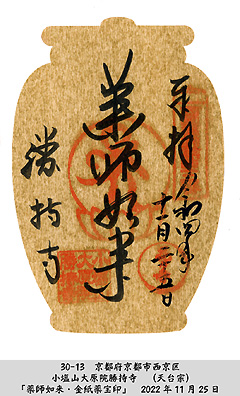 奉拝
令和四年
十一月二十五日
薬師如来
勝持寺
30-13 京都府京都市西京区
小塩山大原院勝持寺 (天台宗)
「薬師如来・金紙薬宝印」 2022年11月25日